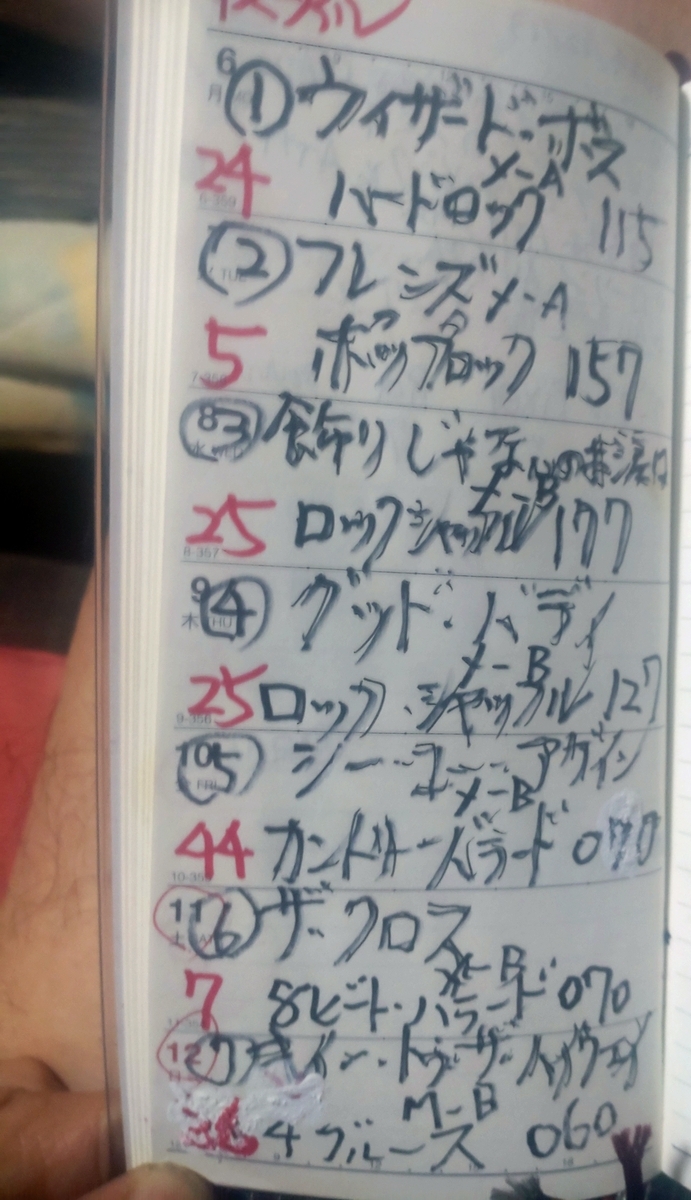 6
月 ① ウィザード・ボス
メーA
24 ハードロック 115
② フレンズ メーA
5 ポップロック 157
8 ③ 飾りじゃないの 涙は
水 メーB
25 ロック シャッフル 177
8-357
9 ④ グッド・バディ
木 THU メーB
25 ロック・シャッフル 127
9-356
10 ⑤ シー・ユー アゲイン
FRI メーB
44 カントリーバラード 070
11 ⑥ ザ・クロス
メーB
7 8ビート・バラード 070
12 ⑦ イン・トゥ・ザ
M-B
36 4 ブルース 060